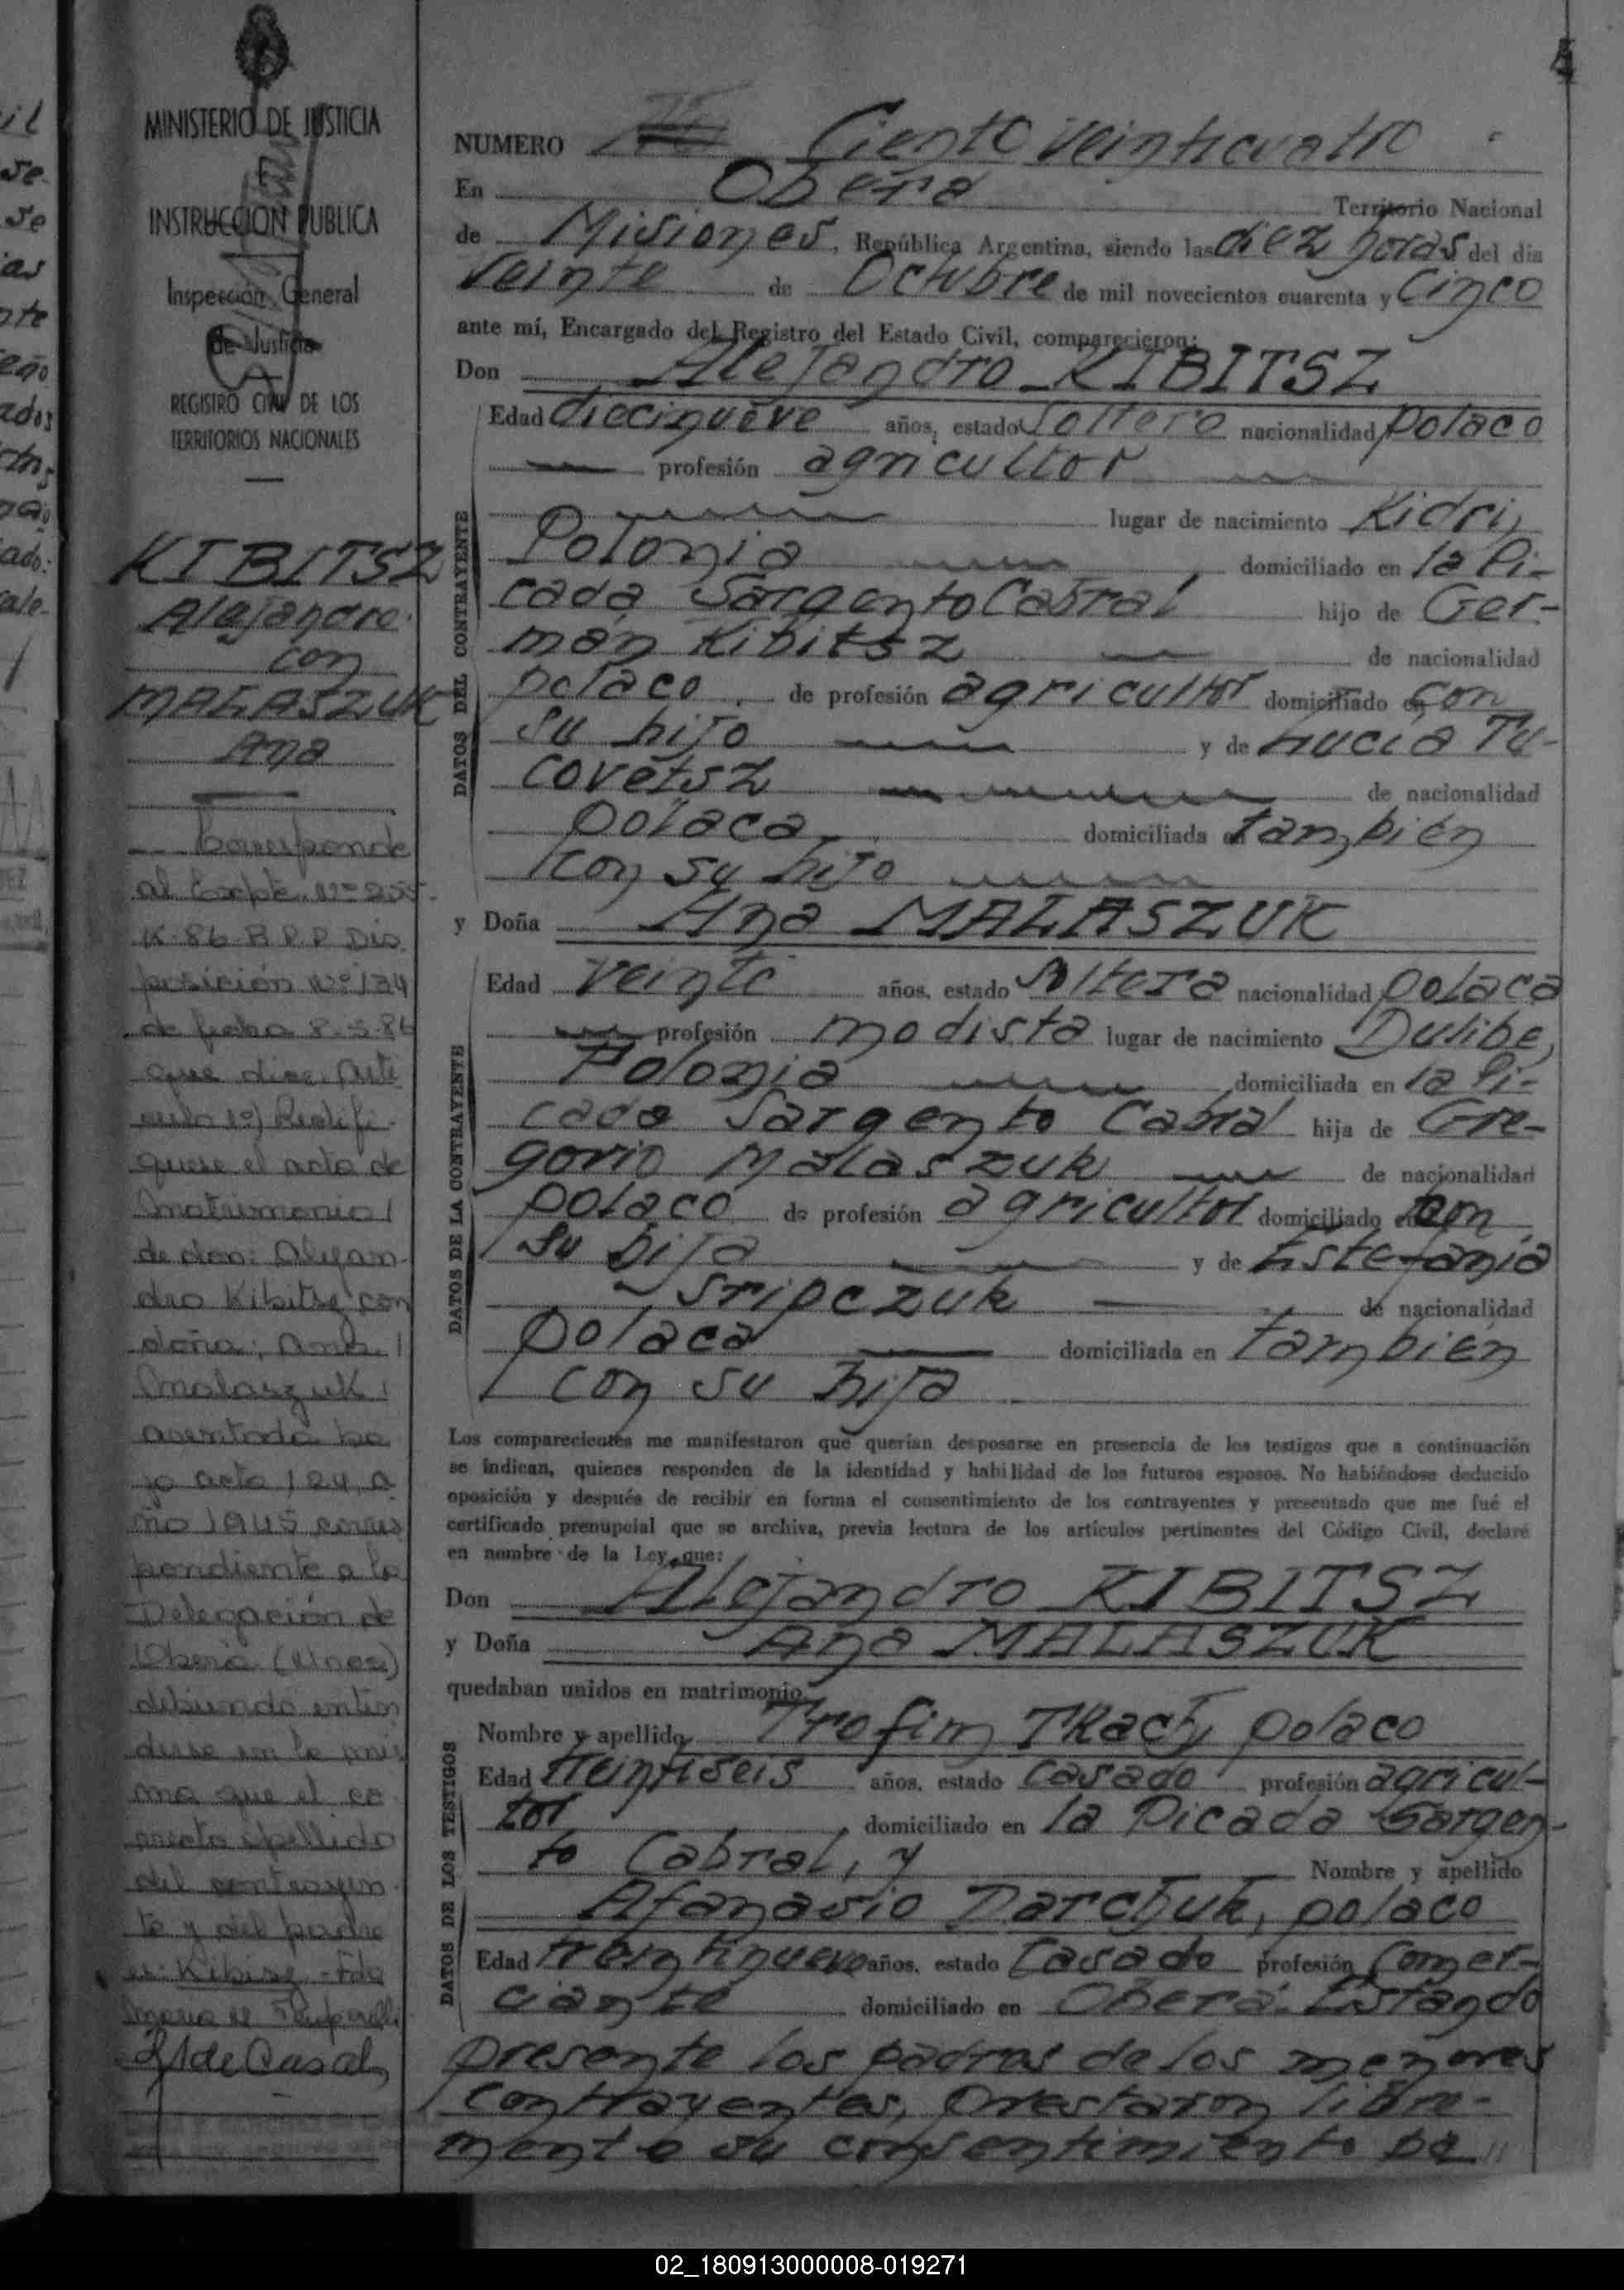 MINISTERIO DE JUSTICIA
E
INSTRUCCIÓN PUBLICA
Inspección General
de Justicia
REGISTRO CIVIL DE LOS
TERRITORIOS NACIONALES
KIBITSZ
Alejandro
con
MALASZUK
Ana
Corresponde
al Expte. Nº 255-
K-86 R.P.P Dis
posición Nº 134
de fecha 8-5-86
que dice: Artí
culo 1º) Rectifi-
quese el acta de
matrimonio
de don: Alejan-
dro Kibitsz con
doña: Ana
Malaszuk
asentada ba
jo acta 124, a
ño 1945 corres
pondiente a la
Delegación de
Oberá (Mnes)
debiendo enten
derse en la mis
ma que el co
rrecto apellido
del contrayen
te y del padre
es: Kibisz - Fdo
Maria
NUMERO Ciento veinticuatro
En Oberá Territorio Nacional
de Misiones, República Argentina, siendo las diez horas del día
veinte de Octubre de mil novecientos cuarenta y Cinco
ante mí, Encargado del Registro del Estado Civil, comparecieron:
Don Alejandro KIBITSZ
DATOS DEL CONTRAYENTE
Edad diecinueve años, estado soltero nacionalidad polaco
profesión agricultor
lugar de nacimiento Kidri,
Polonia domiciliado en la Pi-
cada Sargento Cabral hijo de Ger-
mán Kibitsz de nacionalidad
polaco, de profesión agricultor domiciliado con
su hijo y de Lucía Tu-
covetsz de nacionalidad
polaca, domiciliada en también
con su hijo
y Doña Ana MALASZUK
DATOS DE LA CONTRAYENTE
Edad veinte años, estado soltera nacionalidad polaca
profesión modista lugar de nacimiento Dulibe,
Polonia domiciliada en la Pi-
cada Sargento Cabral hija de Gre-
gorio Malaszuk de nacionalidad
polaco de profesión agricultor domiciliado con
su hija y de Estefania
Sripczuk de nacionalidad
polaca domiciliada en también
con su hija
Los comparecientes me manifestaron que querían desposarse en presencia de los testigos que a continuación
se indican, quienes responden de la identidad y habilidad de los futuros esposos. No habiéndose deducido
oposición y después de recibir en forma el consentimiento de los contrayentes y presentado que me fué el
certificado prenupcial que se archiva, previa lectura de los artículos pertinentes del Código Civil, declaré
en nombre de la Ley que:
Don Alejandro KIBITSZ
y Doña Ana MALASZUK
quedaban unidos en matrimonio.
DATOS DE LOS TESTIGOS
Nombre y apellido Trofim Tkach, polaco
Edad treintiseis años, estado casado profesión agricul-
tor, domiciliado en la Picada Sargen-
to Cabral, y Nombre y apellido
Afanasio Darchuk, polaco
Edad treintinueve años, estado Casado profesión Comer-
ciante domiciliado en Oberá. Estando
presente los padres de los menores
contrayentes, prestaron libre-
mente su consentimiento pa
02_180913000008-019271